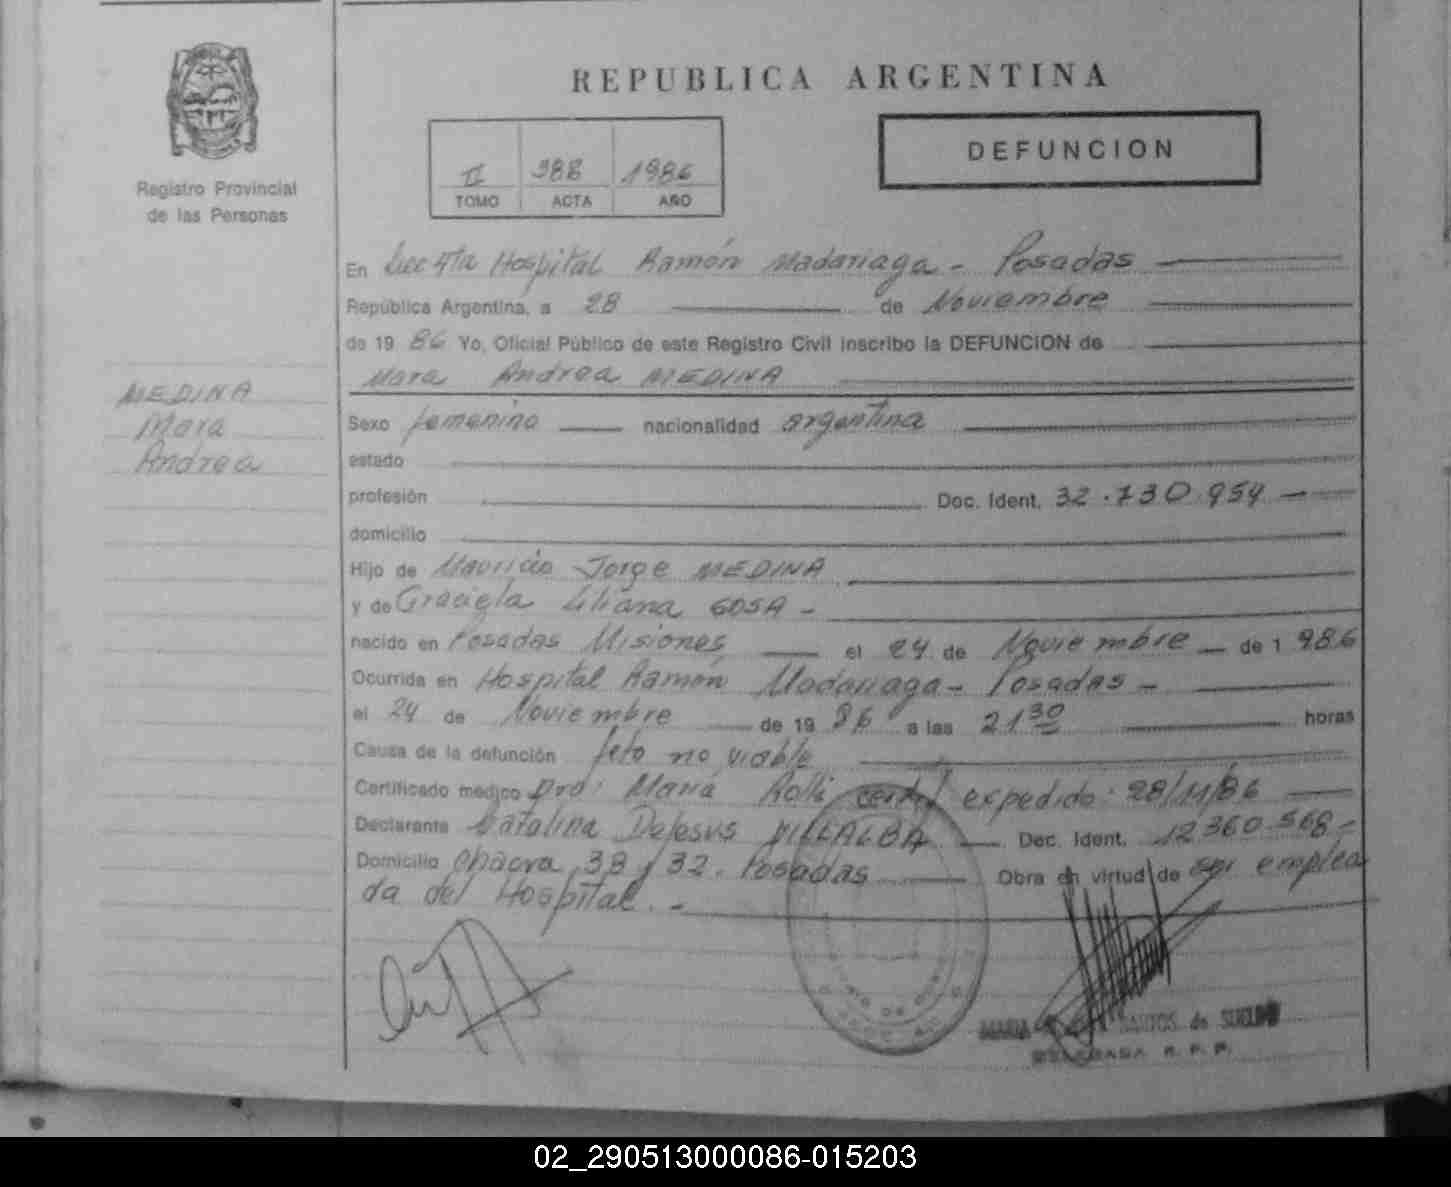 REPUBLICA ARGENTINA
DEFUNCION
II 388 1986
TOMO ACTA AÑO
Registro Provincial
de las Personas
En Secc 4ta Hospital Ramón Madariaga - Posadas
República Argentina, a 28 de Noviembre
de 19 86 Yo, Oficial Público de este Registro Civil inscribo la DEFUNCION de
Mara Andrea MEDINA
MEDINA
Mara
Andrea
Sexo femenino nacionalidad argentina
estado
profesión Doc. Ident. 32.730.954 -
domicilio
Hijo de Mauricio Jorge MEDINA
y de Graciela Liliana SOSA -
nacido en Posadas Misiones el 24 de Noviembre - de 1 986
Ocurrida en Hospital Ramón Madariaga - Posadas -
el 24 de Noviembre de 19 86 a las 21 30 horas
Causa de la defunción feto no viable
Certificado médico Dra: Maria Rolli expedido: 28/11/86
Declarante Catalina DeJesus VILLALBA Doc. Ident. 12.360.568 -
Domicilio Chacra 38 y 32. Posadas Obra en virtud de ser emplea
da del Hospital. -
MARIA SANTOS de
DELEGADA R. P. P.
02_290513000086-015203